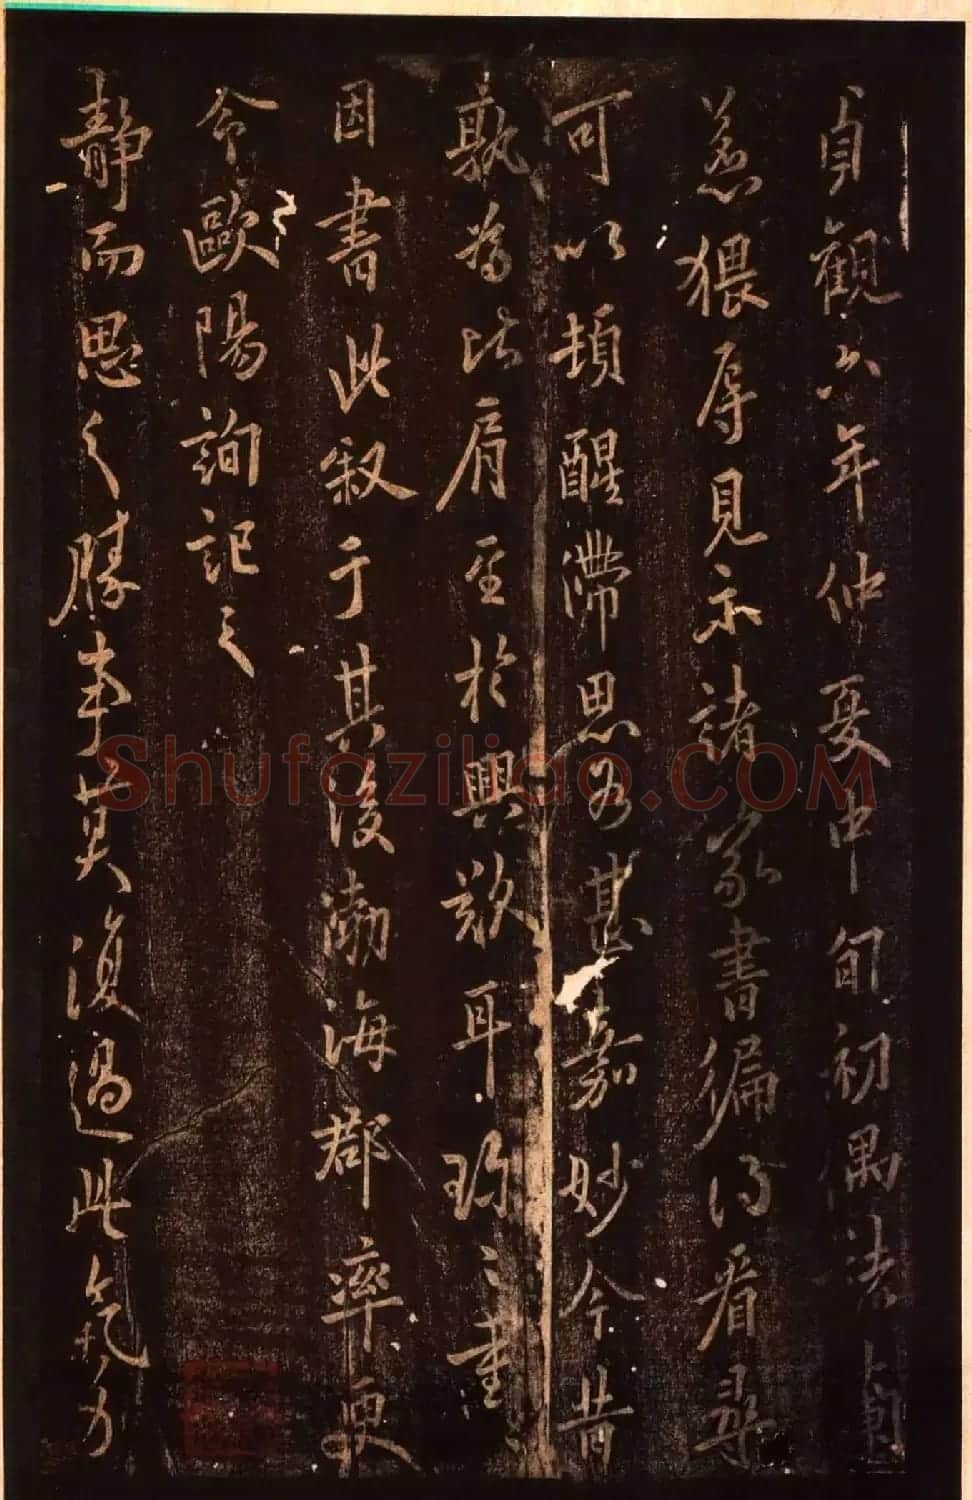 貞觀六年仲夏中旬初偶法
羔猥辱見示諸家書徧得看尋
可以頓醒滯思為甚嘉妙今昔
孰為比肩至於興歎耳珍重
因書此叙于其後渤海郡率更
令歐陽詢記之
靜而思之勝事莫復過此氣力
Shufaziliao.COM